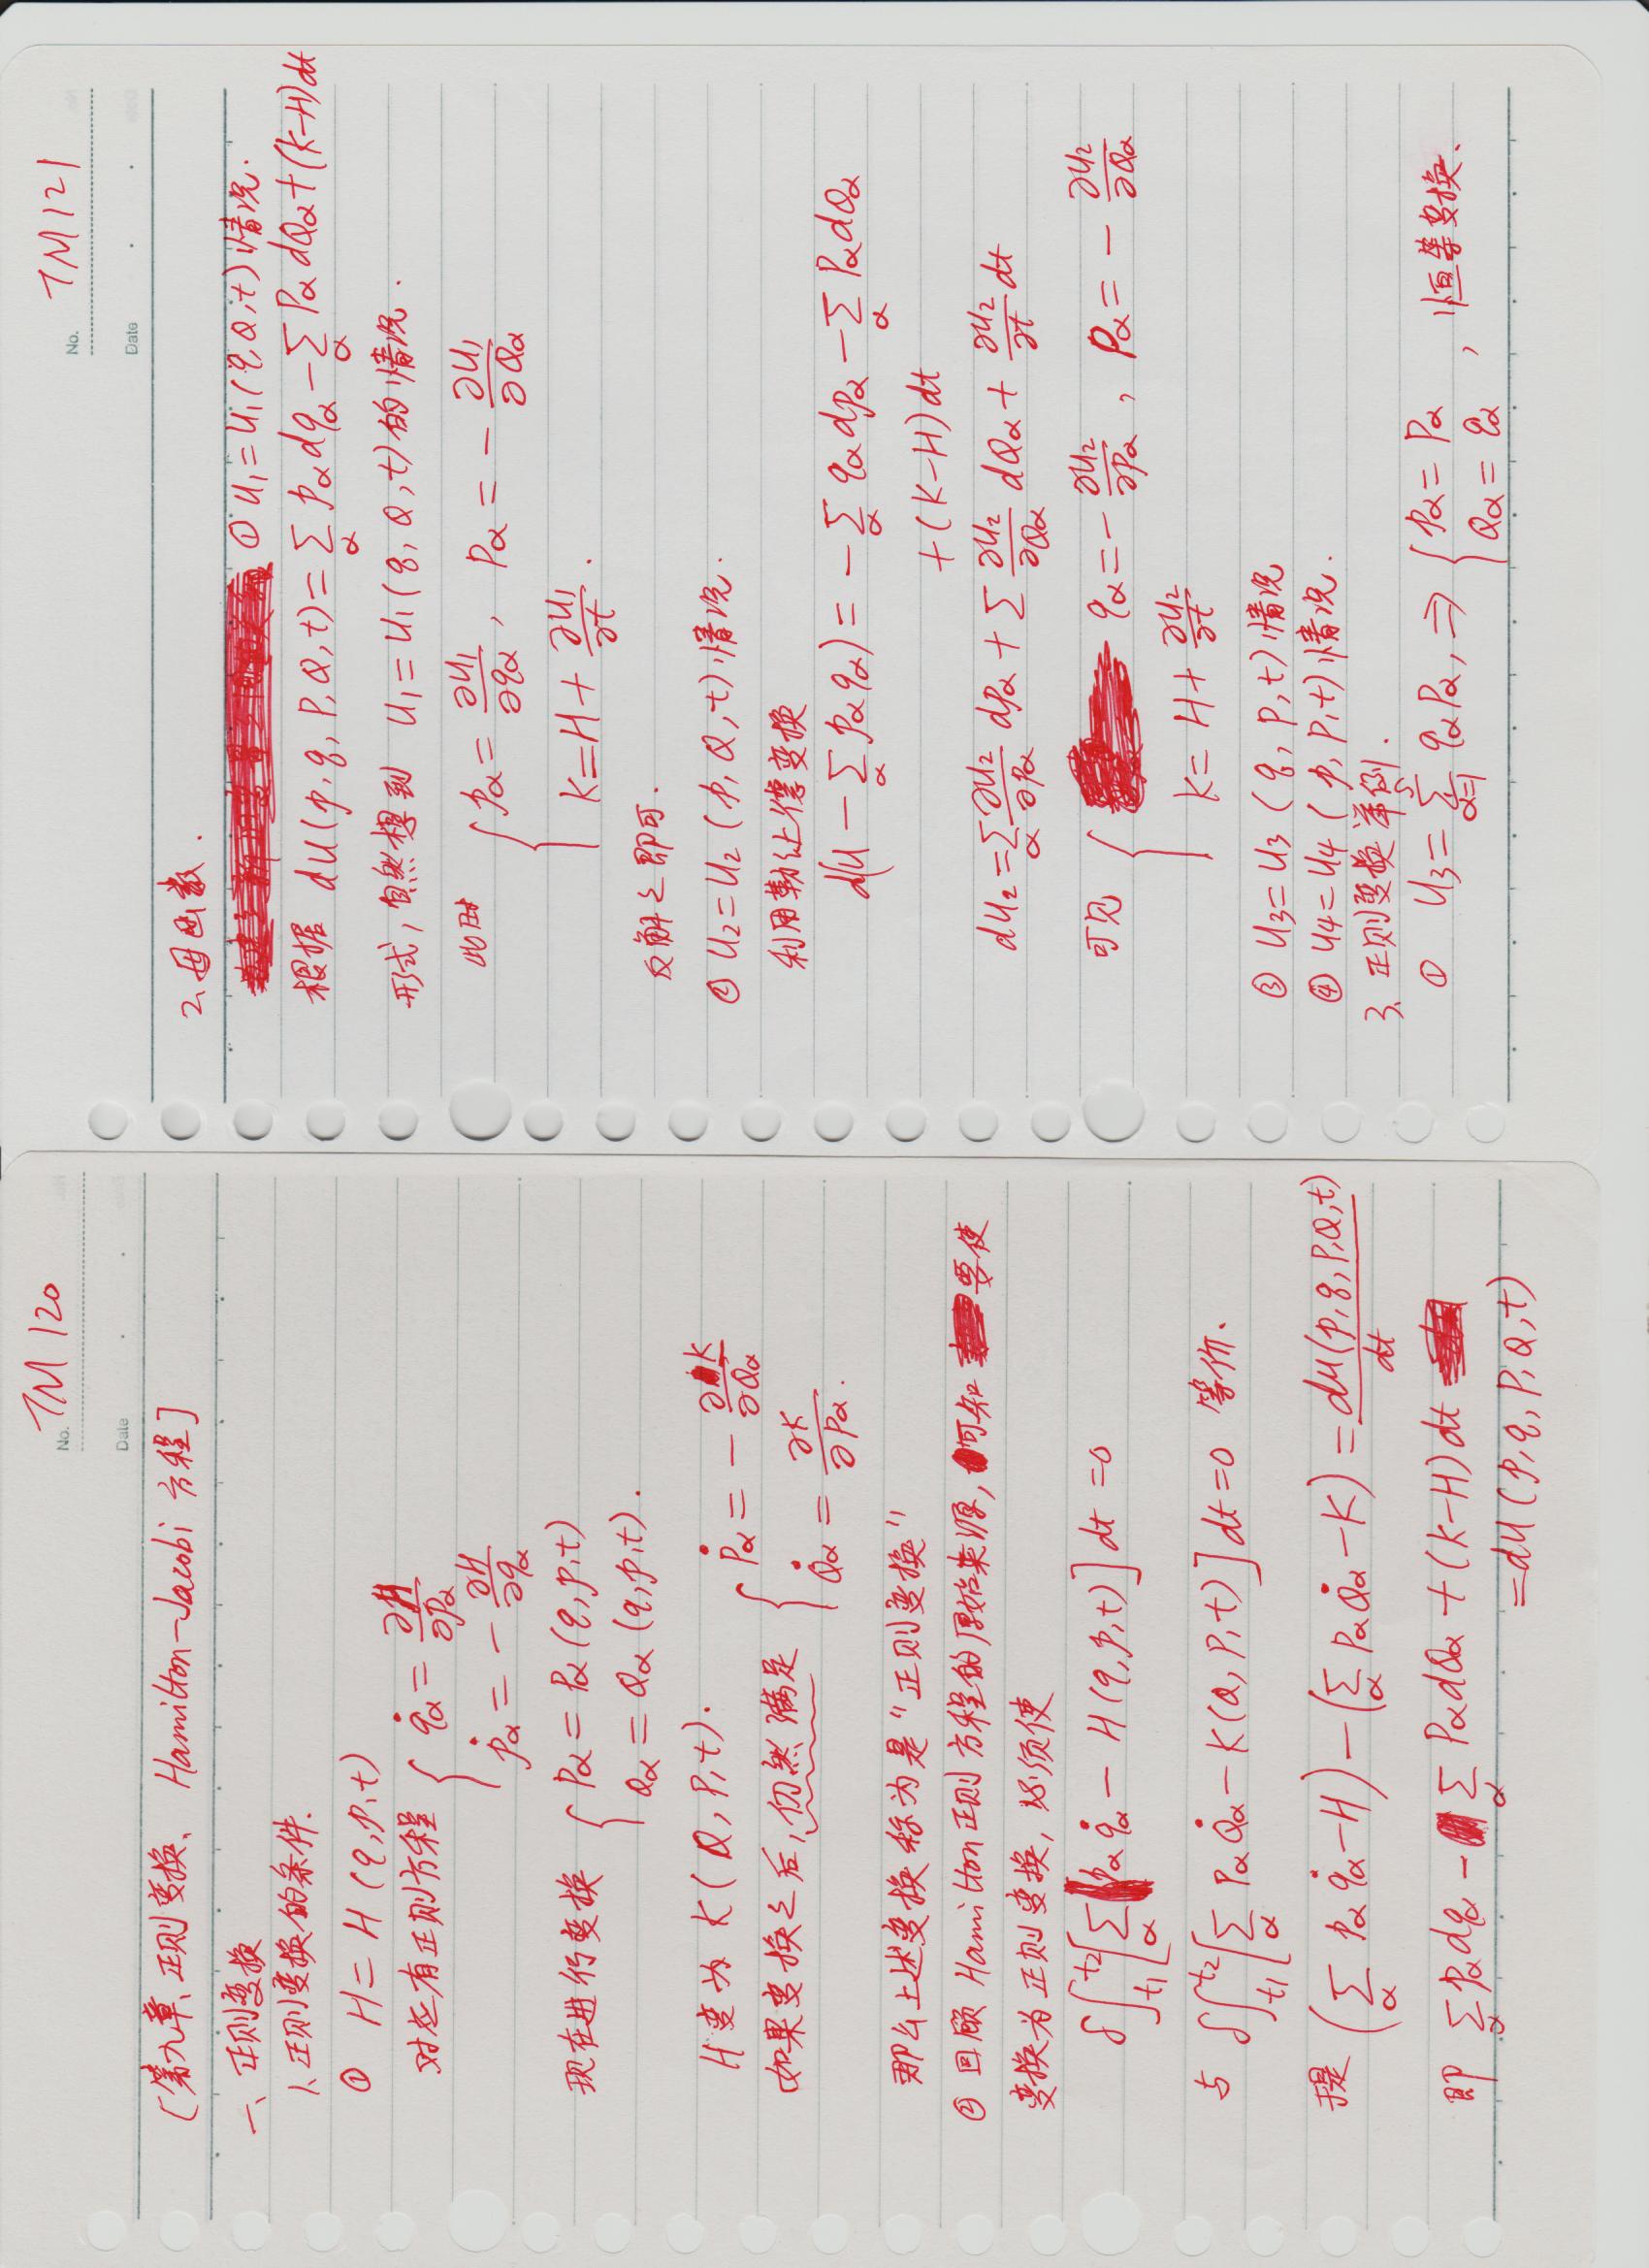 No. TM 120
Date
[第九章、正则变换、Hamilton-Jacobi 方程]
一、正则变换
1、正则变换的条件.
① H = H (q, p, t)
对应有正则方程 { q̇α = ∂H/∂pα
ṗα = - ∂H/∂qα
现在进行变换 { Pα = Pα (q, p, t)
Qα = Qα (q, p, t).
H变为 K(Q, P, t).
如果变换之后, 仍然满足 { Ṗα = - ∂K/∂Qα
Q̇α = ∂K/∂Pα.
那么上述变换称为是“正则变换”
② 回顾 Hamilton 正则方程的原始来源, 可知 要使
变换为正则变换, 必须使
δ∫_{t1}^{t2} [∑_α pα q̇α - H(q, p, t)] dt = 0
与 δ∫_{t1}^{t2} [∑_α Pα Q̇α - K(Q, P, t)] dt = 0 等价.
于是 (∑_α pα q̇α - H) - (∑_α Pα Q̇α - K) = dU(p, q, P, Q, t)/dt
即 ∑_α pα dqα - ∑_α Pα dQα + (K-H) dt
= dU (p, q, P, Q, t)
No. TM 121
Date
2、母函数.
① U1 = U1 (q, Q, t) 情况.
根据 dU(p, q, P, Q, t) = ∑_α pα dqα - ∑_α Pα dQα + (K-H) dt
形式, 自然想到 U1 = U1 (q, Q, t) 的情况.
此时 { pα = ∂U1/∂qα, Pα = - ∂U1/∂Qα
K = H + ∂U1/∂t.
反解之即可.
② U2 = U2 (p, Q, t) 情况.
利用勒让德变换
d(U - ∑_α pα qα) = - ∑_α qα dpα - ∑_α Pα dQα
+ (K-H) dt
dU2 = ∑_α ∂U2/∂pα dpα + ∑ ∂U2/∂Qα dQα + ∂U2/∂t dt
可见 { qα = - ∂U2/∂pα, Pα = - ∂U2/∂Qα
K = H + ∂U2/∂t
③ U3 = U3 (q, P, t) 情况
④ U4 = U4 (p, P, t) 情况.
3、正则变换举例.
① U3 = ∑_{α=1}^{s} qα Pα, ⇒ { pα = Pα
Qα = qα , 恒等变换.